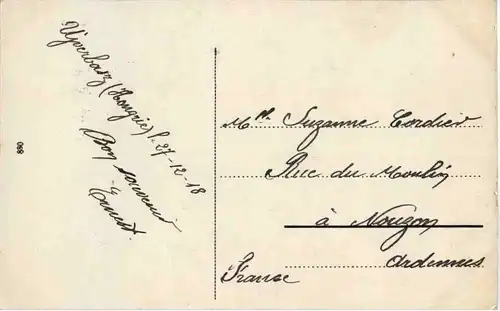 Ujverbasz (Hongrie) l. 27-12-18
Bon souvenir
Ernest.
Mlle Suzanne Cordier
Rue du Moulin
à Nouzon
Ardennes
France
089